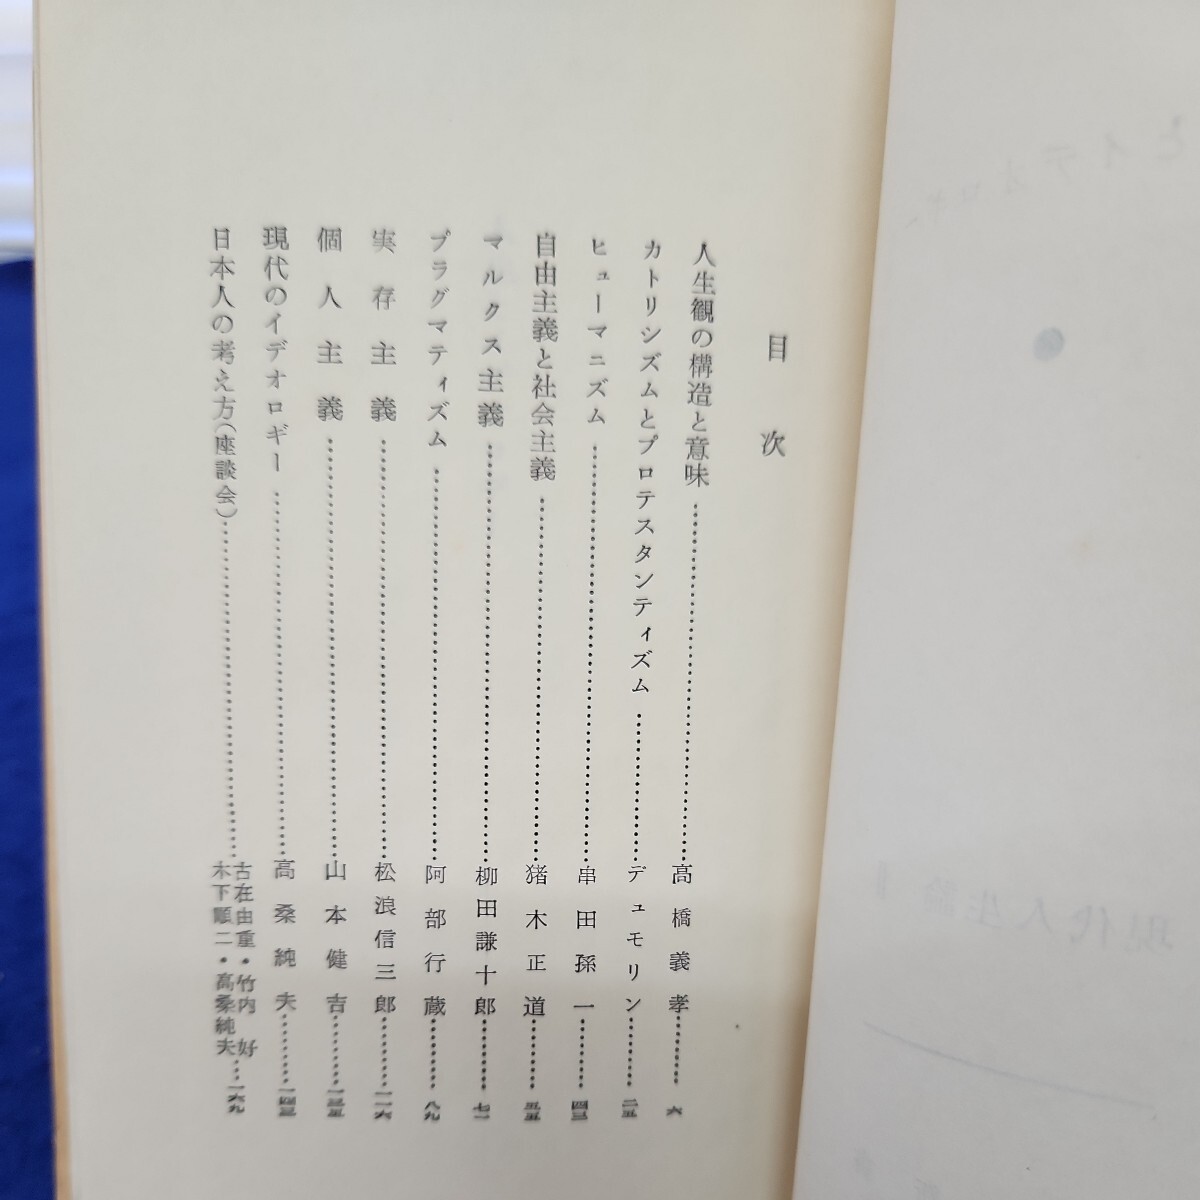 目次
人生観の構造と意味……高橋義孝……六
カトリシズムとプロテスタンティズム……デュモリン……二五
ヒューマニズム……串田孫一……四三
自由主義と社会主義……猪木正道……五五
マルクス主義……柳田謙十郎……七一
プラグマティズム……阿部行蔵……八九
実存主義……松浪信三郎……一一六
個人主義……山本健吉……一三五
現代のイデオロギー……高桑純夫……一四三
日本人の考え方（座談会）……古在由重・竹内好
木下順二・高桑純夫……一六九